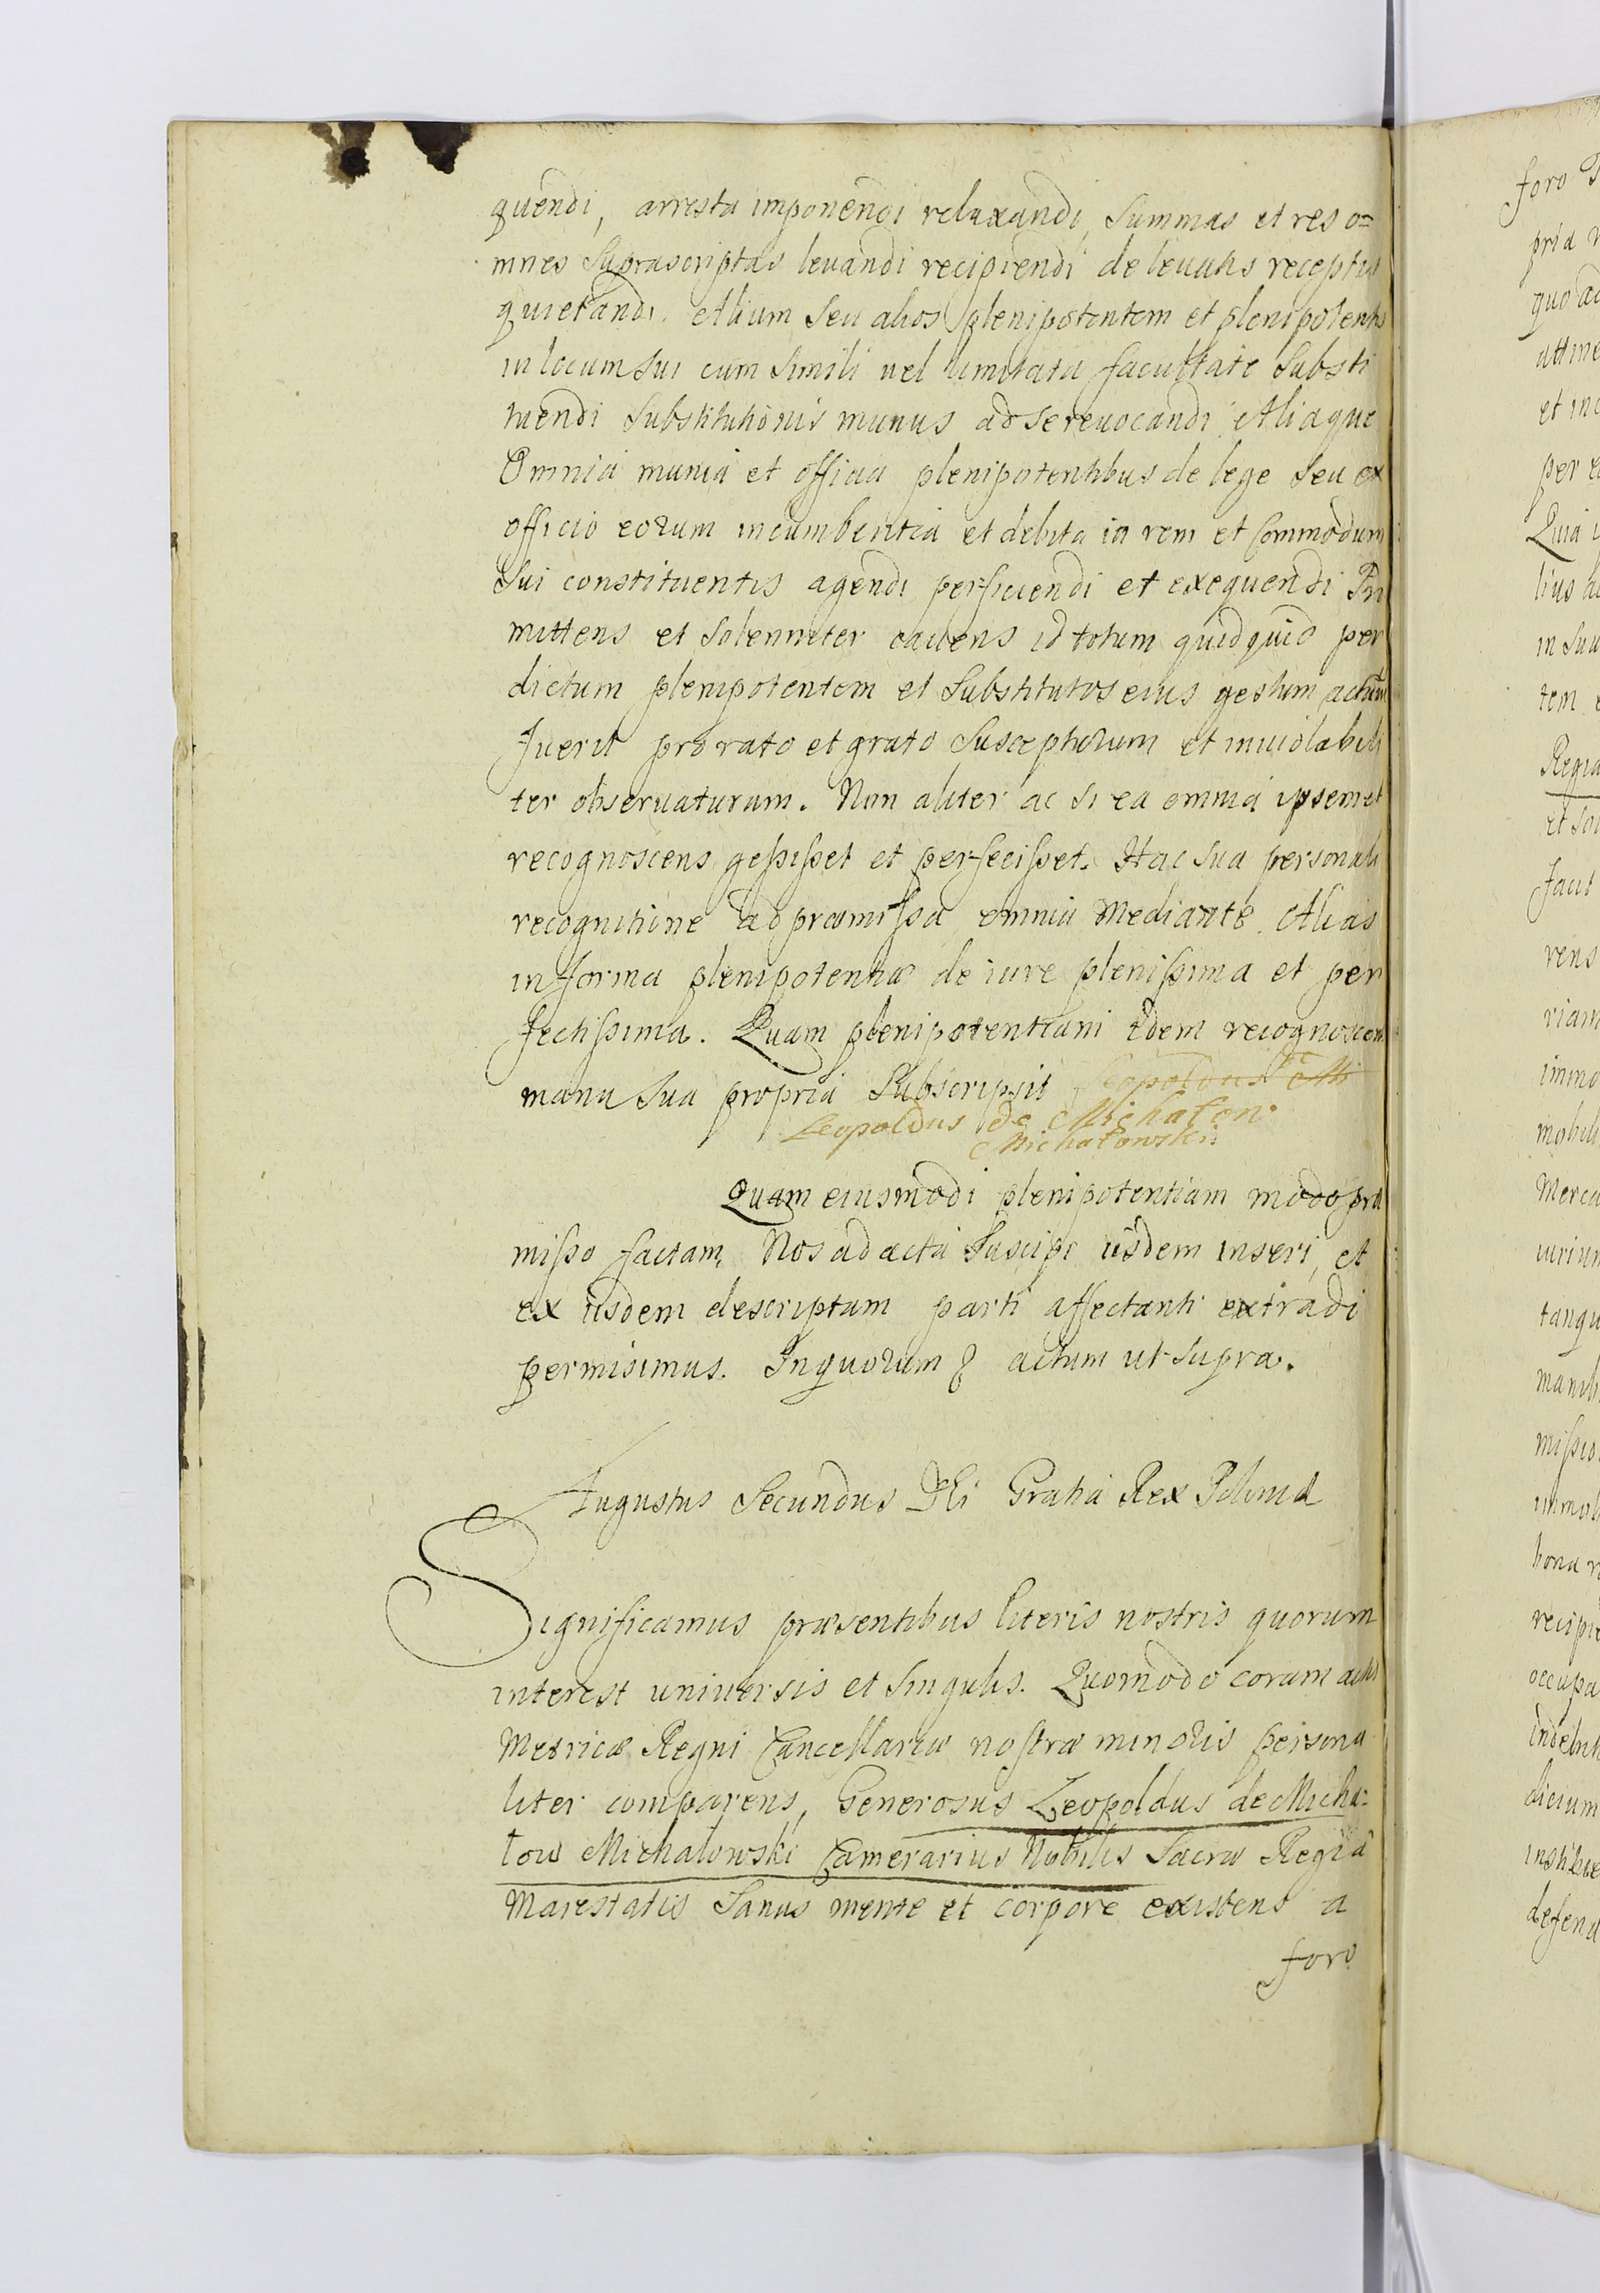 quendi, arresta imponendi relaxandi, Summas et res o=
mnes Suprascriptas levandi recipiendi de levatis receptis
quietandi. Alium Seu alios plenipotentem et plenipotentes
in locum sui cum simili vel limitata facultate Substi
tuendi Substitutionis munus ad se revocandi. Aliaque
Omnia munia et officia plenipotentibus de lege Seu ex
officio eorum incumbentia et debita in rem et Commodum
Sui constituentis agendi perficiendi et exequendi Pro
mittens et Solenniter cavens id totum quidquid per
dictum plenipotentem et Substitutos eius gestum actum
fuerit pro rato et grato Suscepturum et inviolabili
ter observaturum. Non aliter ac si ea omnia ipsemet
recognoscens gessisset et perfecisset. Hac Sua personali
recognitione ad præmissa omnia Mediante. Alias
in forma plenipotentiæ de iure plenissima et per
fectissima. Quam plenipotentiam Idem recognoscens
manu Sua propria Subscripsit Leopoldus de Mi
Leopoldus de Michałow
Michałowski
Quam eiusmodi plenipotentiam modo præ
misso factam, Nos ad acta Suscipi iisdem inseri, et
ex iisdem descriptam parti affectanti extradi
permisimus. In quorum actum ut Supra.
Augustus Secundus DEi Gratia Rex Poloniæ
Significamus præsentibus literis nostris quorum
interest universis et Singulis. Quomodo coram actis
Metricæ Regni Cancellariæ nostræ minoris persona
liter comparens, Generosus Leopoldus de Micha=
low Michalowski Camerarius Nobilis Sacræ Regiæ
Maiestatis Sanus mente et corpore existens a
foro
foro
pria
quo ad
attine
et in
per e
Quia
lius
in Su
tem
Regia
et So
facit
rens
riam
immo
mobili
Merca
tangu
missio
immob
bona
recipie
occupa
indebit
dicium
institue
defend